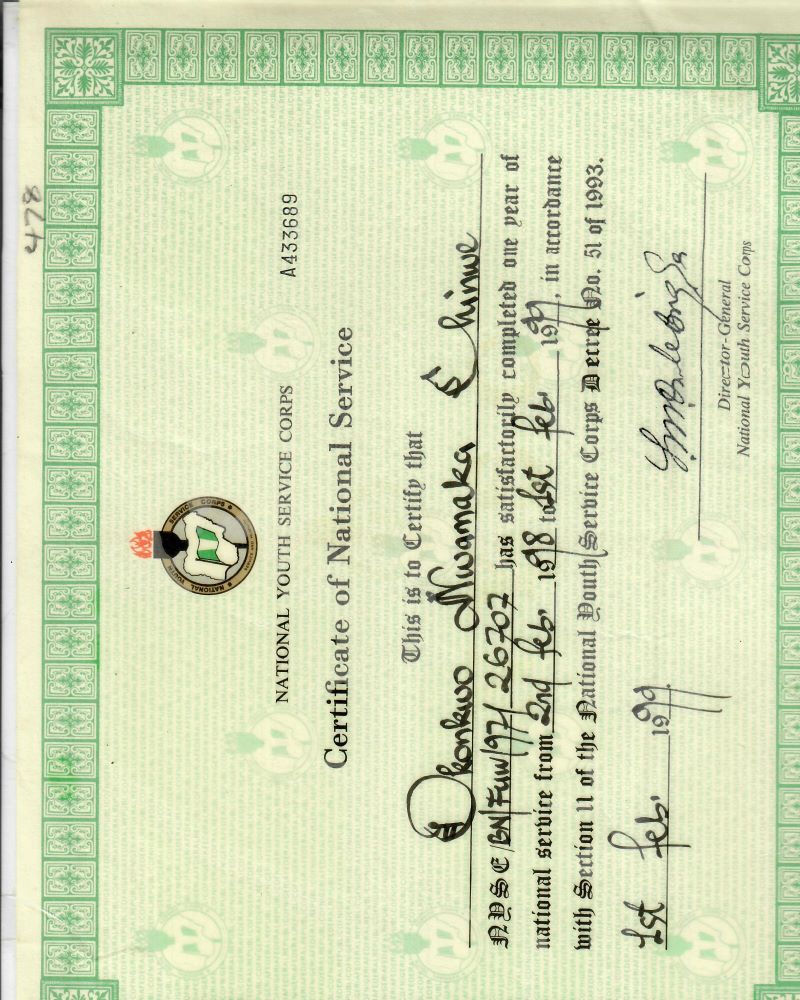 478
A433689
NATIONAL YOUTH SERVICE CORPS
NATIONAL YOUTH SERVICE CORPS
Certificate of National Service
This is to Certify that
Okonkwo Nwamaka E Chinwe
NYSC/BN/FUW/97/26707 has satisfactorily completed one year of
national service from 2nd Feb. 1998 to 1st Feb. 1999, in accordance
with Section 11 of the National Youth Service Corps Decree No. 51 of 1993.
1st Feb. 1999.
Director-General
National Youth Service Corps